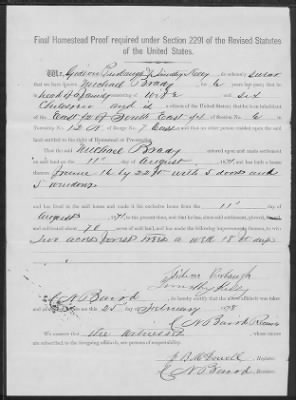 Final Homestead Proof required under Section 2291 of the Revised Statutes
of the United States.
We, Gideon & Timothy Kelly do solemnly swear
that we have known Michael Brady for 6 years last past; that he is
head of a family consisting of wife and six
Children and is a citizen of the United States; that he is an inhabitant
of the East ½ of South East qr of Section No. 6 in
Township No. 12 N of Range No. 7 East and that no other person resided upon the said
land entitled to the right of Homestead or Pre-emption.
That the said Michael Brady entered upon and made settlement
on said land on the 11th day of August, 1871, and has built a house
thereon frame 16 by 22 ft with 3 doors and
5 windows
and has lived in the said house and made it his exclusive home from the 11th day of
August, 1871, to the present time, and that he has, since said settlement, plowed,
and cultivated about 70 acres of said land, and has made the following improvements thereon, to wit:
two acres forest trees a well 18 ft deep
Timothy Kelly
I, C N Baird do hereby certify that the above affidavit was taken
and subscribed before me this 25 day of February 1878
C N Baird Receiver
We certify that the whose names
are subscribed to the foregoing affidavit, are persons of respectability.
J B McDowell, Register.
C N Baird, Receiver.